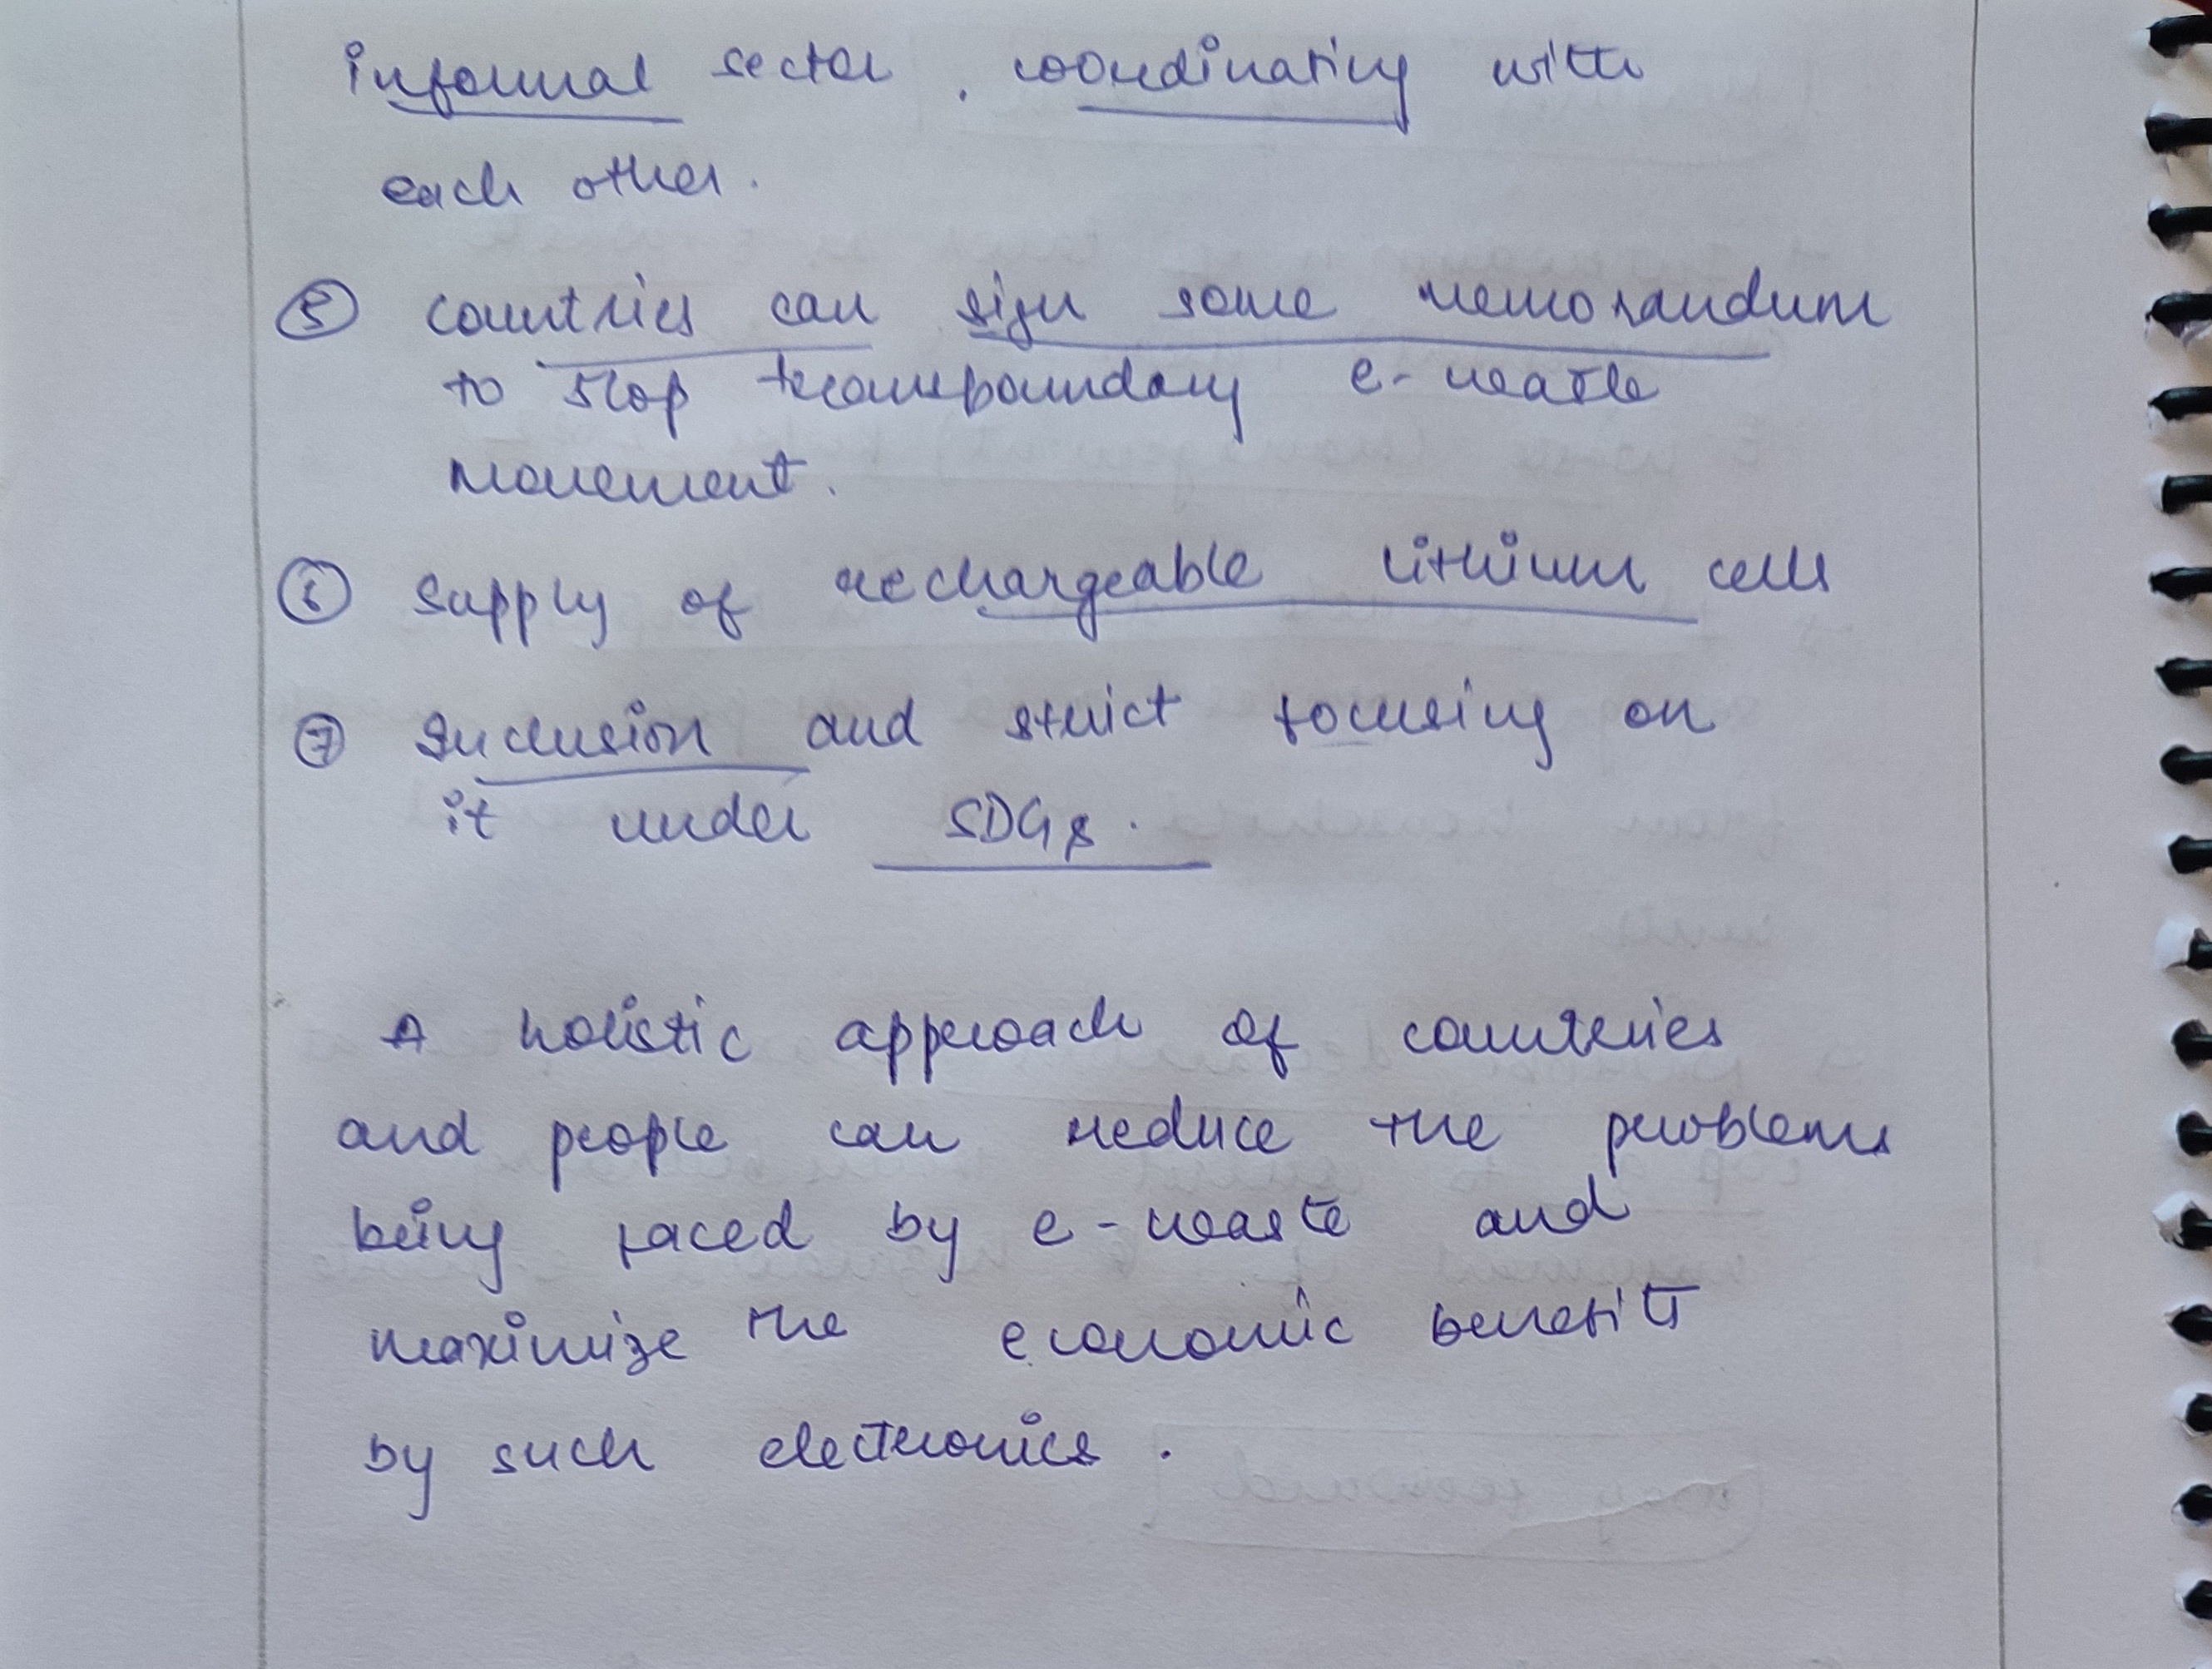 informal sector, coordinating with
each other.
⑤ countries can sign some memorandum
to stop transboundary e-waste
movement.
⑥ Supply of rechargeable lithium cells
⑦ Inclusion and strict focusing on
it under SDGs.
A holistic approach of countries
and people can reduce the problems
being faced by e-waste and
maximize the economic benefits
by such electronics.